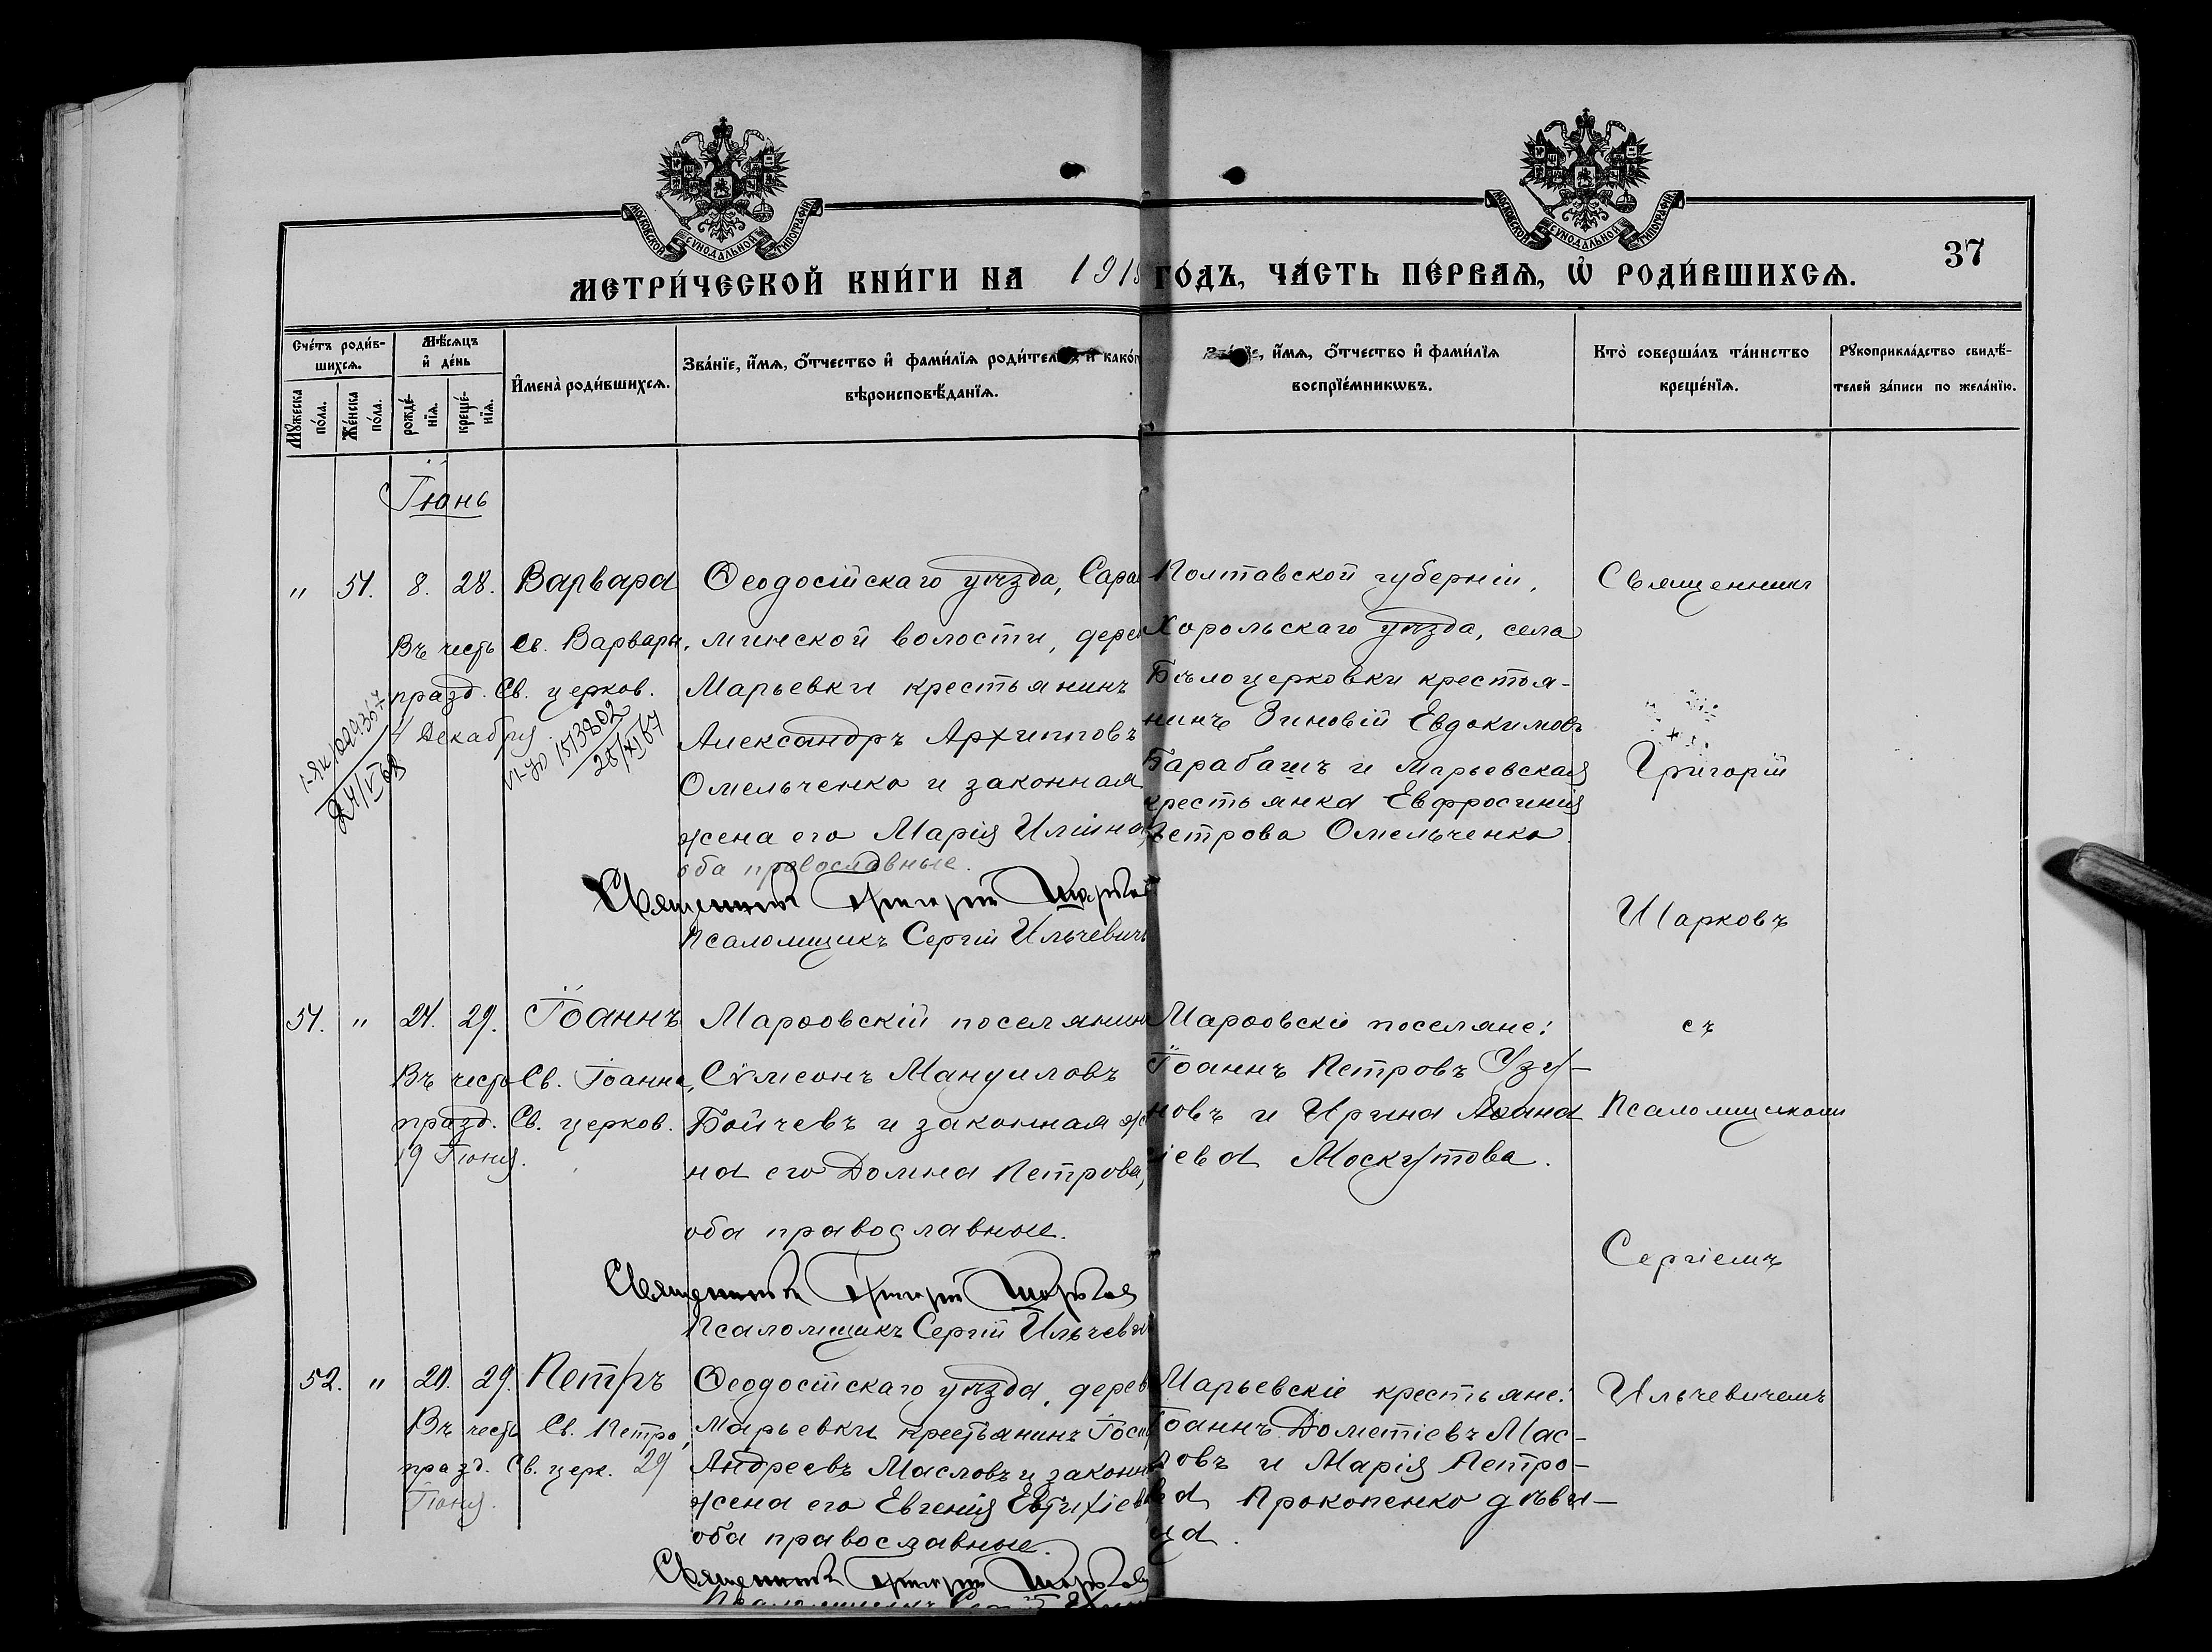 МОСКОВСКОЙ СУНОДАЛЬНОЙ ТИПОГРАФІИ
МОСКОВСКОЙ СУНОДАЛЬНОЙ ТИПОГРАФІИ
37
МЕТРИ́ЧЕСКОЙ КНИ́ГИ НА 191
ГО́ДЪ, ЧА́СТЬ ПЕ́РВАѦ, Ѡ РОДИ́ВШИХСѦ.
Сче́тъ роди́в-
шихсѧ.
Мꙋ́жеска по́ла.
Же́нска по́ла.
Мѣ́сѧцъ
и҆ де́нь
рожде́-
нїѧ.
креще́-
нїѧ.
И҆мена̀ роди́вшихсѧ.
Зва́нїе, и҆́мѧ, ѻ҆́тчество и҆ фами́лїѧ роди́телей, и҆ како́г
вѣроисповѣ́данїѧ.
Зва́нїе, и҆́мѧ, ѻ҆́тчество и҆ фами́лїѧ
воспрїе́мникѡвъ.
Кто̀ соверша́лъ та́инство
креще́нїѧ.
Рꙋкоприкла́дство свидѣ́-
телей за́писи по жела́нїю.
Іюнь
" 51. 8. 28. Варвара
Въ честь Св. Варвары,
празд. Св. церков.
4 Декабря.
24/VI 68
28/XI 67
Ѳеодосійскаго уѣзда, Сара
минской волости, дерев
Марьевки крестьянинъ
Александръ Архиповъ
Омельченко и законная
жена его Марія Иліина,
оба православные.
Священникъ Григорій Шарковъ
Псаломщикъ Сергій Ильчевичъ
Полтавской губерніи,
Хорольскаго уѣзда, села
Бѣлоцерковки крестья-
нинъ Зиновій Евдокимовъ
Барабашъ и Марьевская
крестьянка Евфросинія
Петрова Омельченко
Священникъ
Григорій
Шарковъ
съ
Псаломщикомъ
Сергіемъ
Ильчевичемъ
51. " 24. 29. Іоаннъ
Въ честь Св. Іоанна,
празд. Св. церков.
19 Іюня.
Марѳовскій поселянинъ
Сѵмеонъ Мануиловъ
Бойчевъ и законная же
на его Домна Петрова,
оба православные.
Священникъ Григорій Шарковъ
Псаломщикъ Сергій Ильчевичъ
Марѳовскіе поселяне:
Іоаннъ Петровъ Узу-
новъ и Ирина Аѳана
сіева Москутова.
52. " 20. 29. Петръ
Въ честь Св. Петра,
празд. Св. церк. 29
Іюня.
Ѳеодосійскаго уѣзда, дерев
Марьевки крестьянинъ Іоси
Андреевъ Масловъ и законн
жена его Евгенія Евтихіев
оба православные.
Священникъ Григорій Шарковъ
Марьевскіе крестьяне:
Іоаннъ Дометіевъ Мас-
ловъ и Марія Петро-
ва Прокопенко дѣви-
ца.